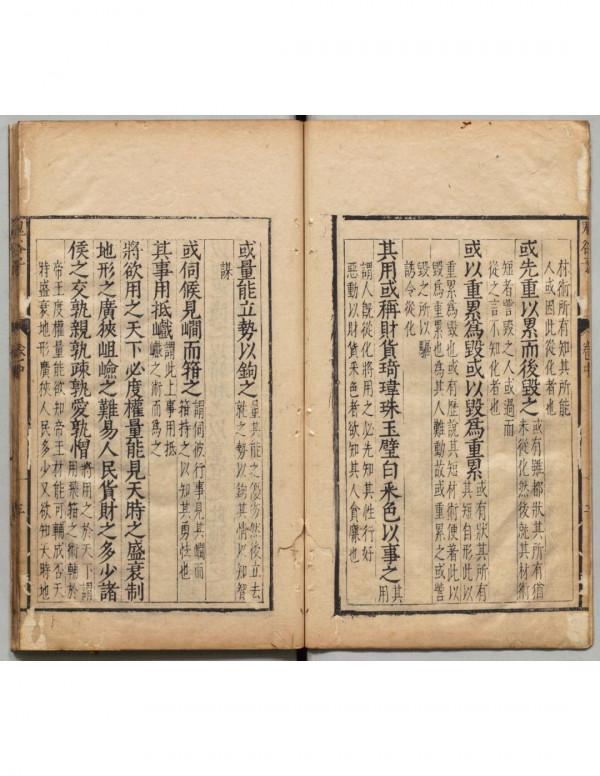 材術所有知其所能
人或因此從化者也
或先重以累而後毀之
或有雖都狀其所有猶
未從化然後就其材術
短者訾毀之人或過而
從之言不知化者也
或以重累爲毀或以毀爲重累
或有狀其所有
其短自形此以
重累爲毀也或有歷說其短材術便著此以
毀爲重累也爲其人難動故或重累之或訾
毀之所以驅
誘令從化
其用或稱財貨琦瑋珠玉璧白采色以事之
其
用
謂人既從化將用之必先知其性行好
惡動以財貨采色者欲知其人貪廉也
卷中
或量能立勢以鉤之
量其能之優劣然後立去
就之勢以鉤其情以知智
謀
或伺候見㵎而箝之
謂伺彼行事見其㵎而
箝持之以知其勇怯也
其事用抵巇
謂此上事用抵
巇之術而爲之
將欲用之天下必度權量能見天時之盛衰制
地形之廣狹岨嶮之難易人民貨財之多少諸
侯之交孰親孰疎孰愛孰憎
將用之於天下謂
用飛箝之術輔於
帝王度權量能欲知帝王材能可輔成否天
特盛衰地形廣狹人民多少又欲知天時地